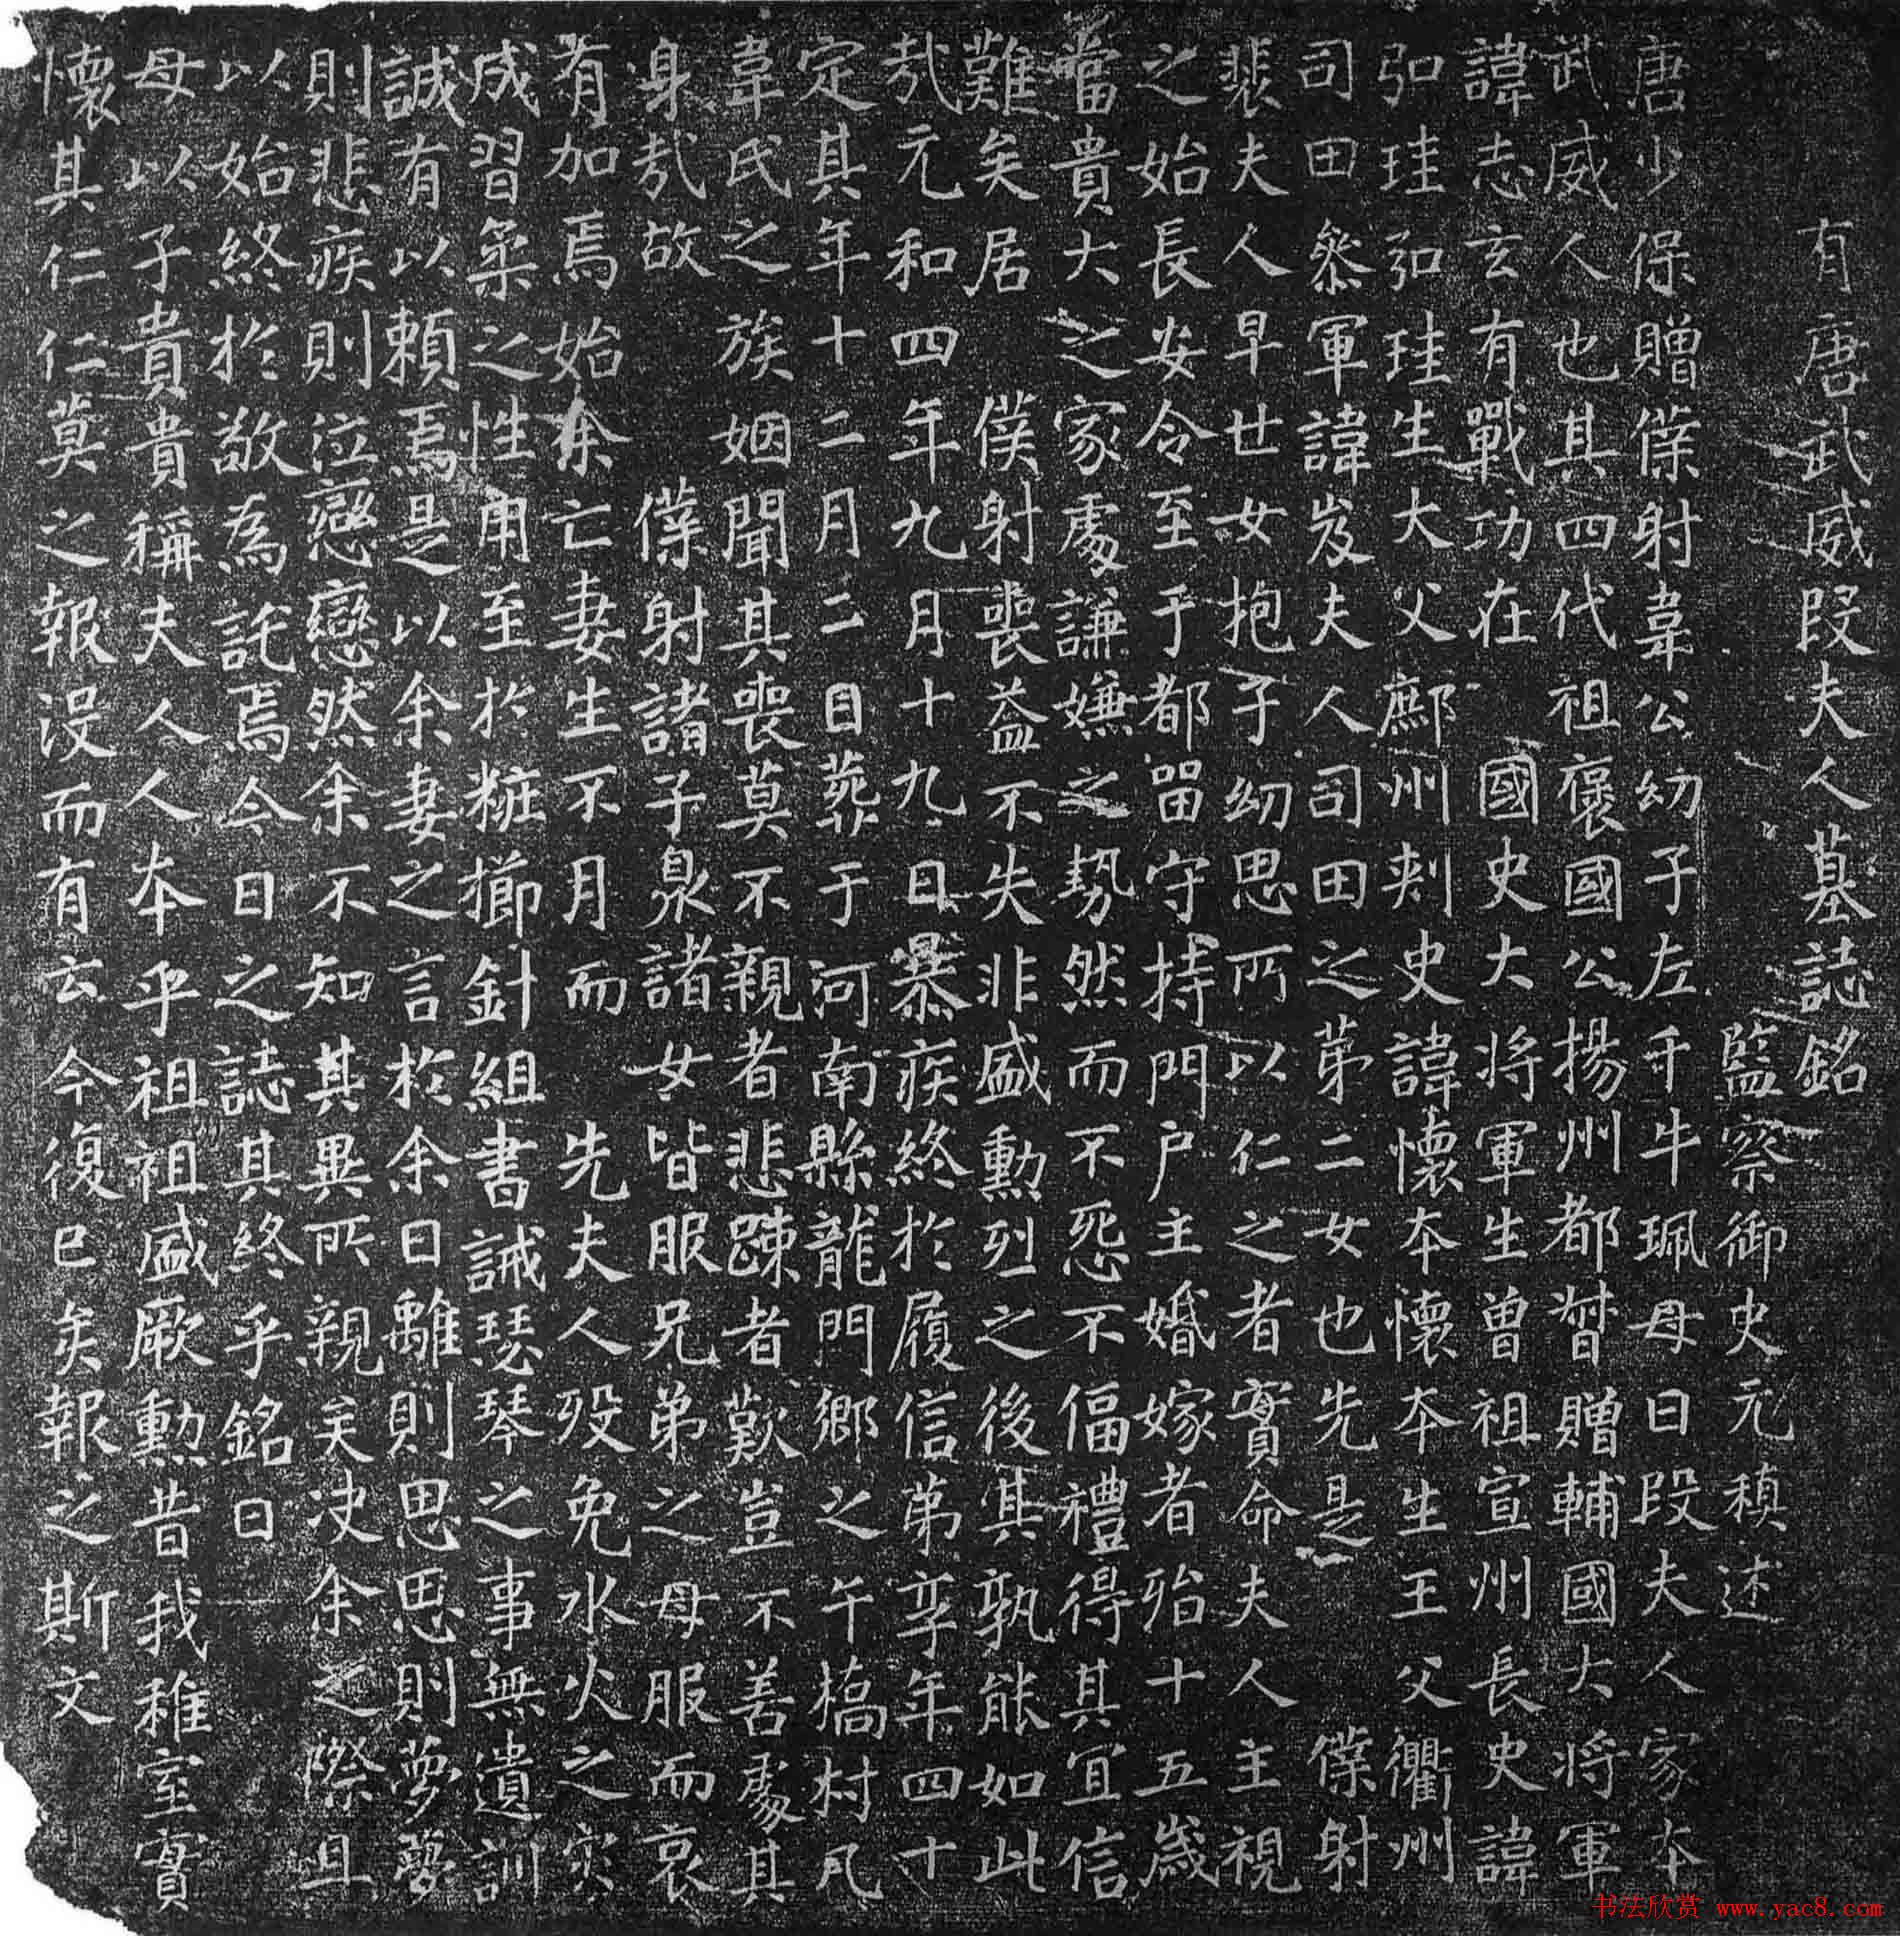 有唐武威段夫人墓誌銘
監察御史元稹述
唐少保贈僕射韋公幼子左千牛珮母曰段夫人家本
武威人也其四代祖襃國公揚州都督贈輔國大將軍
諱志玄有戰功在國史大將軍生曾祖宣州長史諱
弘珪弘珪生大父鄜州刺史諱懷本懷本生王父衢州
司田叅軍諱岌夫人司田之第二女也先是僕射
裴夫人早世女抱子幼思所以仁之者實命夫人主視
之始長安令至于都留守持門户主婚嫁者殆十五歲
當貴大之家處謙嫌之勢然而不怨不偪禮得其宜信
難矣居僕射喪益不失非盛勳烈之後其孰能如此
哉元和四年九月十九日暴疾終於履信第享年四十
定其年十二月二日葬于河南縣龍門鄉之午橋村凡
韋氏之族姻聞其喪莫不親者悲踈者歎豈不善處其
身哉故僕射諸子泉諸女皆服兄弟之母服而哀
有加焉始余亡妻生不月而先夫人殁免水火之灾
成習柔之性用至於粧擳針組書誡琴瑟之事無遺訓
誠有以賴焉是以余妻之言於余曰離則思思則夢夢
則悲疾則泣戀戀然余不知其異所親矣决余之際且
以始終於敬為託焉今日之誌其終乎銘曰
母以子貴貴稱夫人人本乎祖祖盛厥勳昔我稚室實
懷其仁仁莫之報没而有云今復已矣報之斯文
书法欣赏 www.yac8.com